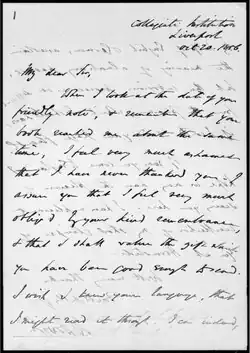 1
Collegiate Institution
Liverpool
Oct 20. 1856.
My dear Sir,
When I look at the date of your
friendly note, & remember that your
book reached me about the same
time, I feel very much ashamed
that I have never thanked you. I
assure you that I feel very much
obliged by your kind remembrance,
& that I shall value the gift which
you have been good enough to send.
I wish I knew your language, that
I might read it through. I can indeed,